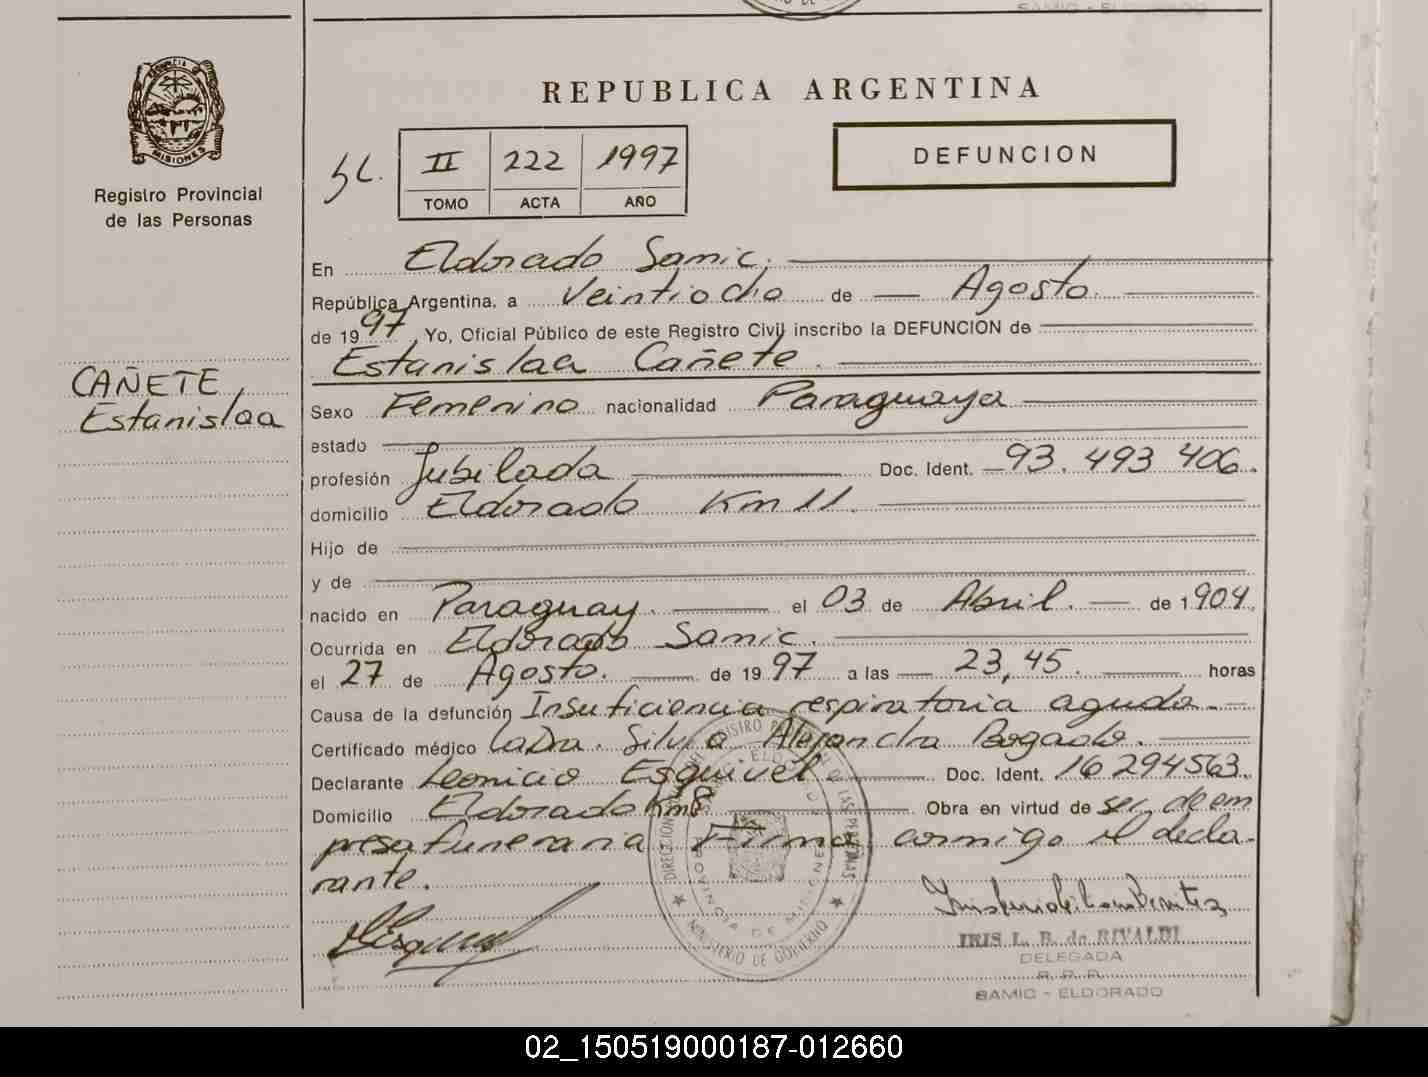 SAMIC - ELDORADO
PROVINCIA DE
MISIONES
Registro Provincial
de las Personas
CAÑETE,
Estanislaa
REPUBLICA ARGENTINA
II 222 1997
TOMO ACTA AÑO
DEFUNCION
En Eldorado Samic.
República Argentina, a Veintiocho de Agosto.
de 1997, Yo, Oficial Público de este Registro Civil inscribo la DEFUNCION de
Estanislaa Cañete
Sexo Femenino nacionalidad Paraguaya
estado
profesión Jubilada Doc. Ident. 93.493 406.
domicilio Eldorado Km 11.
Hijo de
y de
nacido en Paraguay. el 03 de Abril. de 1904.
Ocurrida en Eldorado Samic.
el 27 de Agosto. de 1997 a las 23,45. horas
Causa de la defunción Insuficiencia respiratoria aguda.
Certificado médico la Dra. Silvia Alejandra Bogado.
Declarante Leonicio Esquivel Doc. Ident. 16 294563.
Domicilio Eldorado Km8. Obra en virtud de ser de em
presa funeraria Firma conmigo el decla-
rante.
IRIS L. B. de RIVALDI
DELEGADA
R. P. P.
SAMIC - ELDORADO
MINISTERIO DE GOBIERNO
PROVINCIA DE MISIONES
02_150519000187-012660